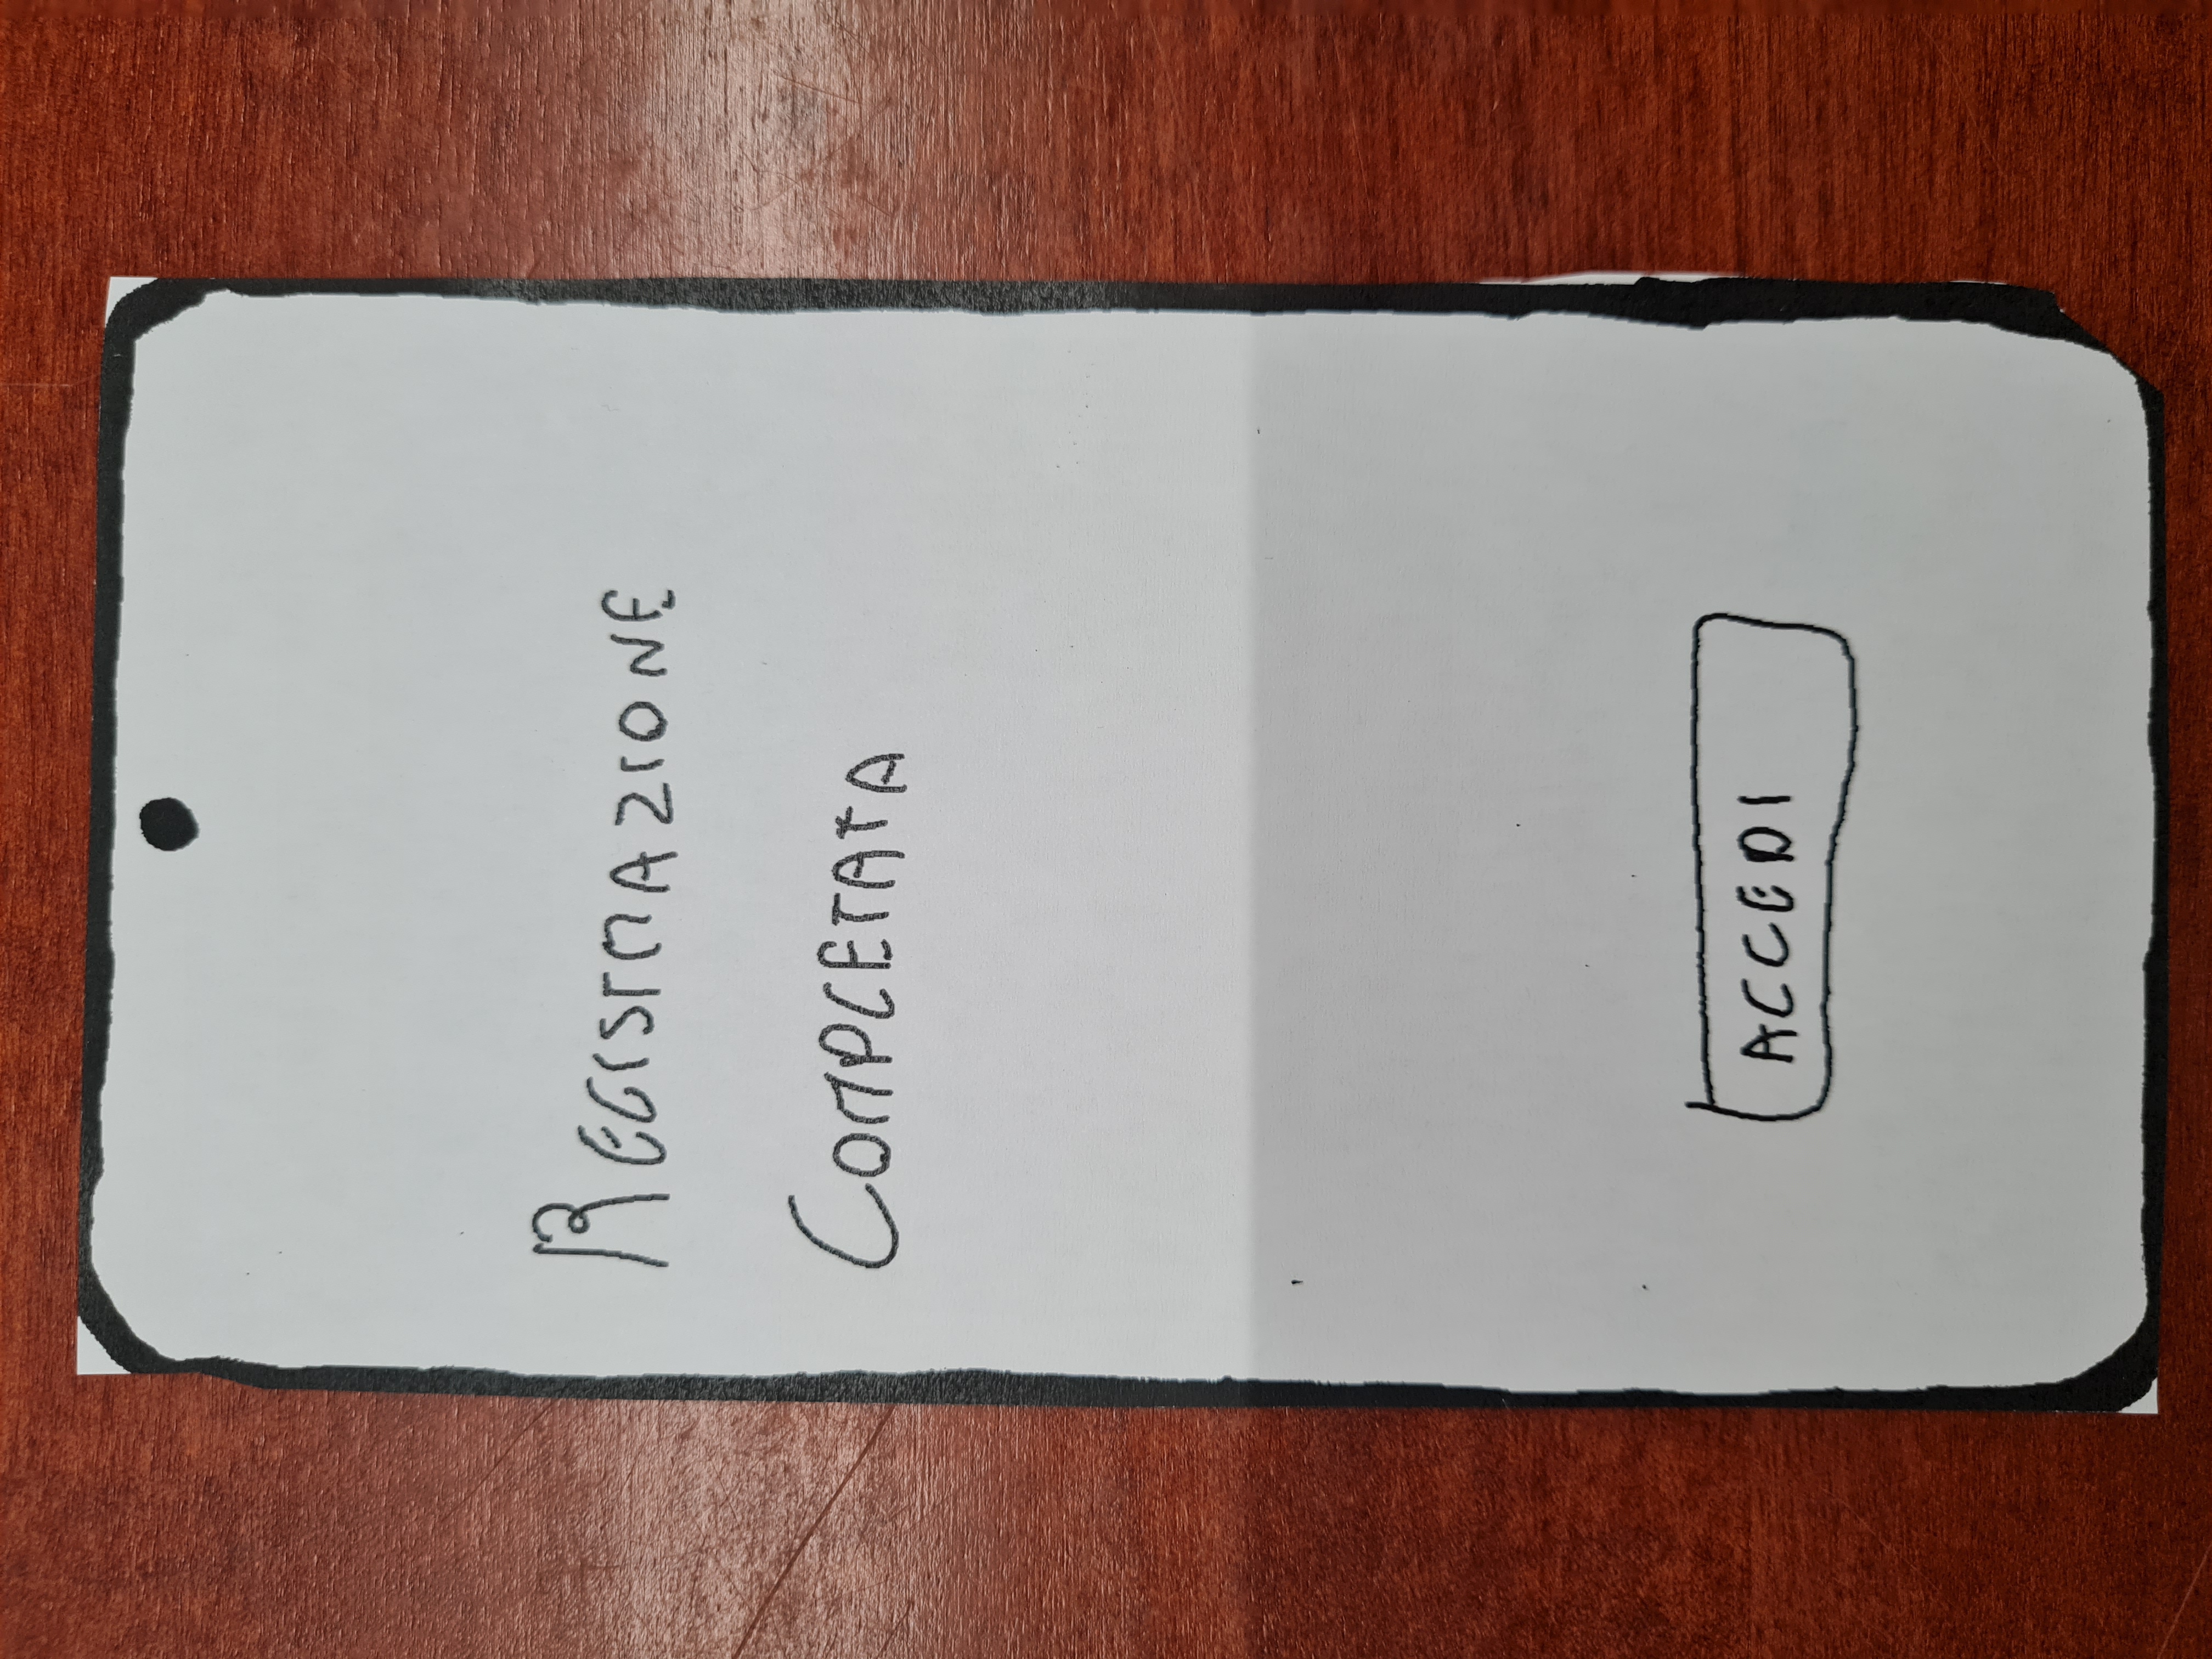 REGISTRAZIONE
COMPLETATA
ACCEDI